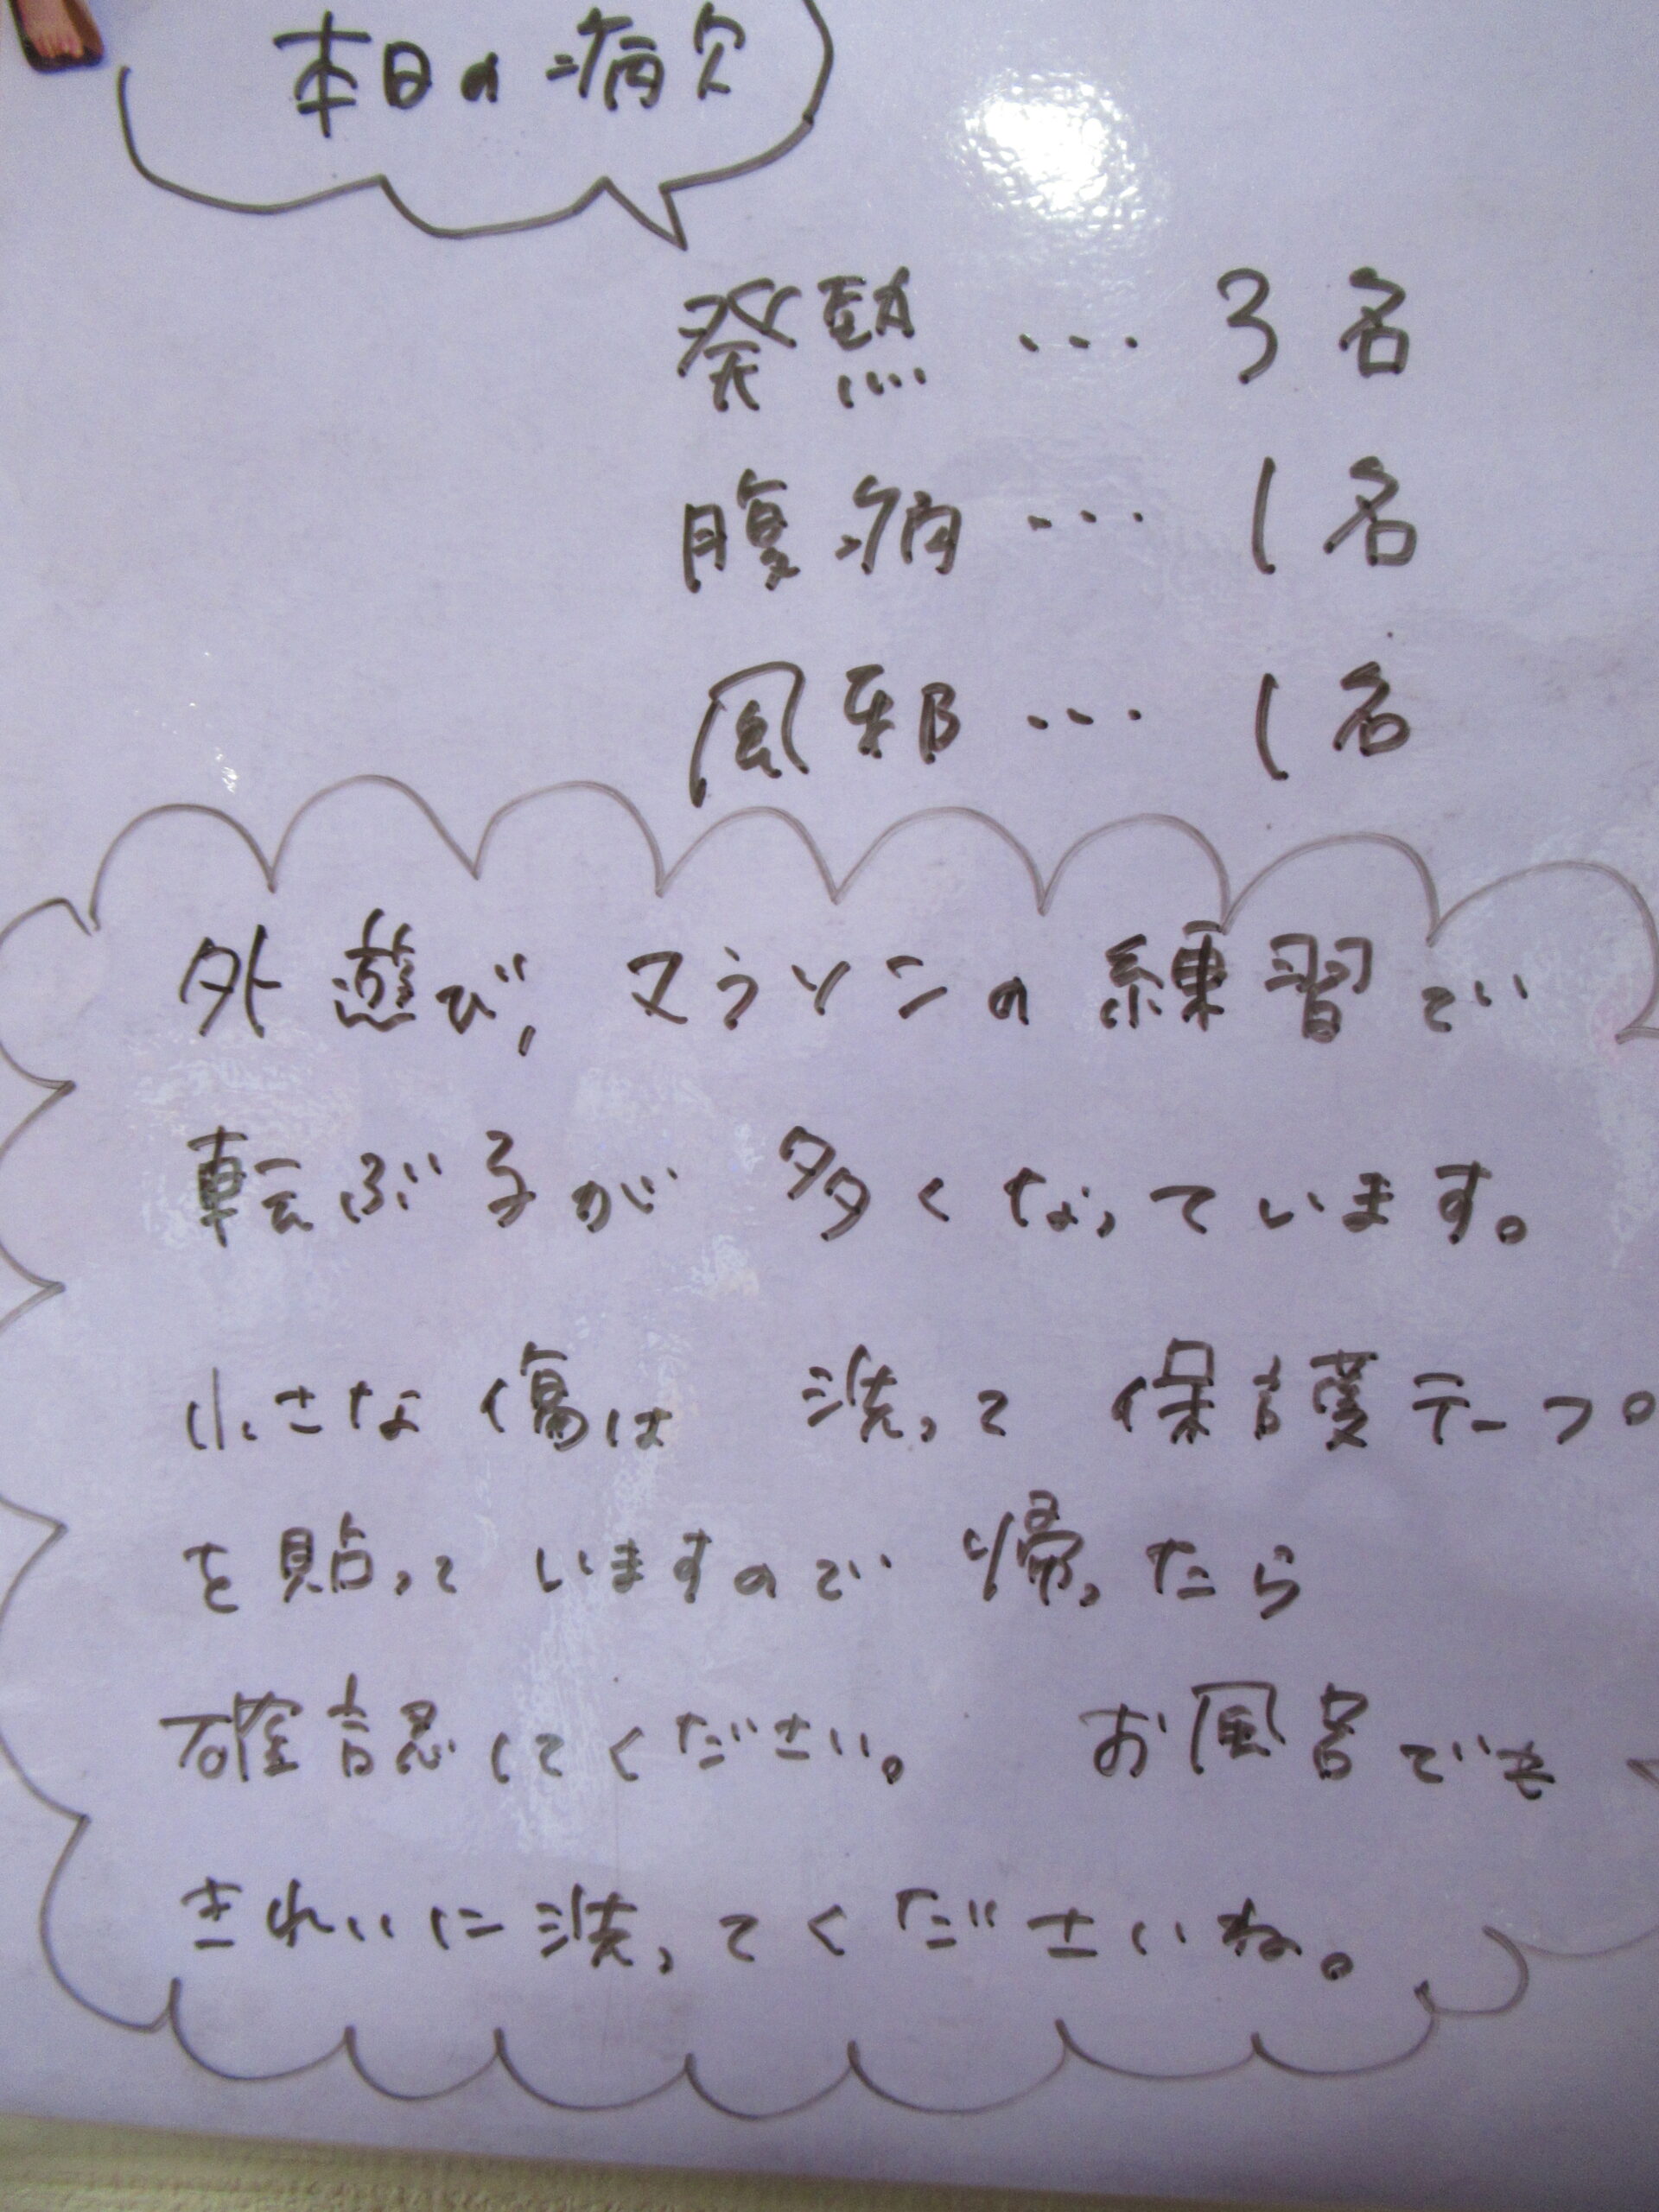 本日の病欠
発熱 ... 3名
腹痛 ... 1名
風邪 ... 1名
外遊び, マラソンの練習で
転ぶ子が 多くなっています。
小さな傷は 洗って 保護テープ
を貼って いますので 帰ったら
確認してください。 お風呂でも
きれいに洗ってくださいね。